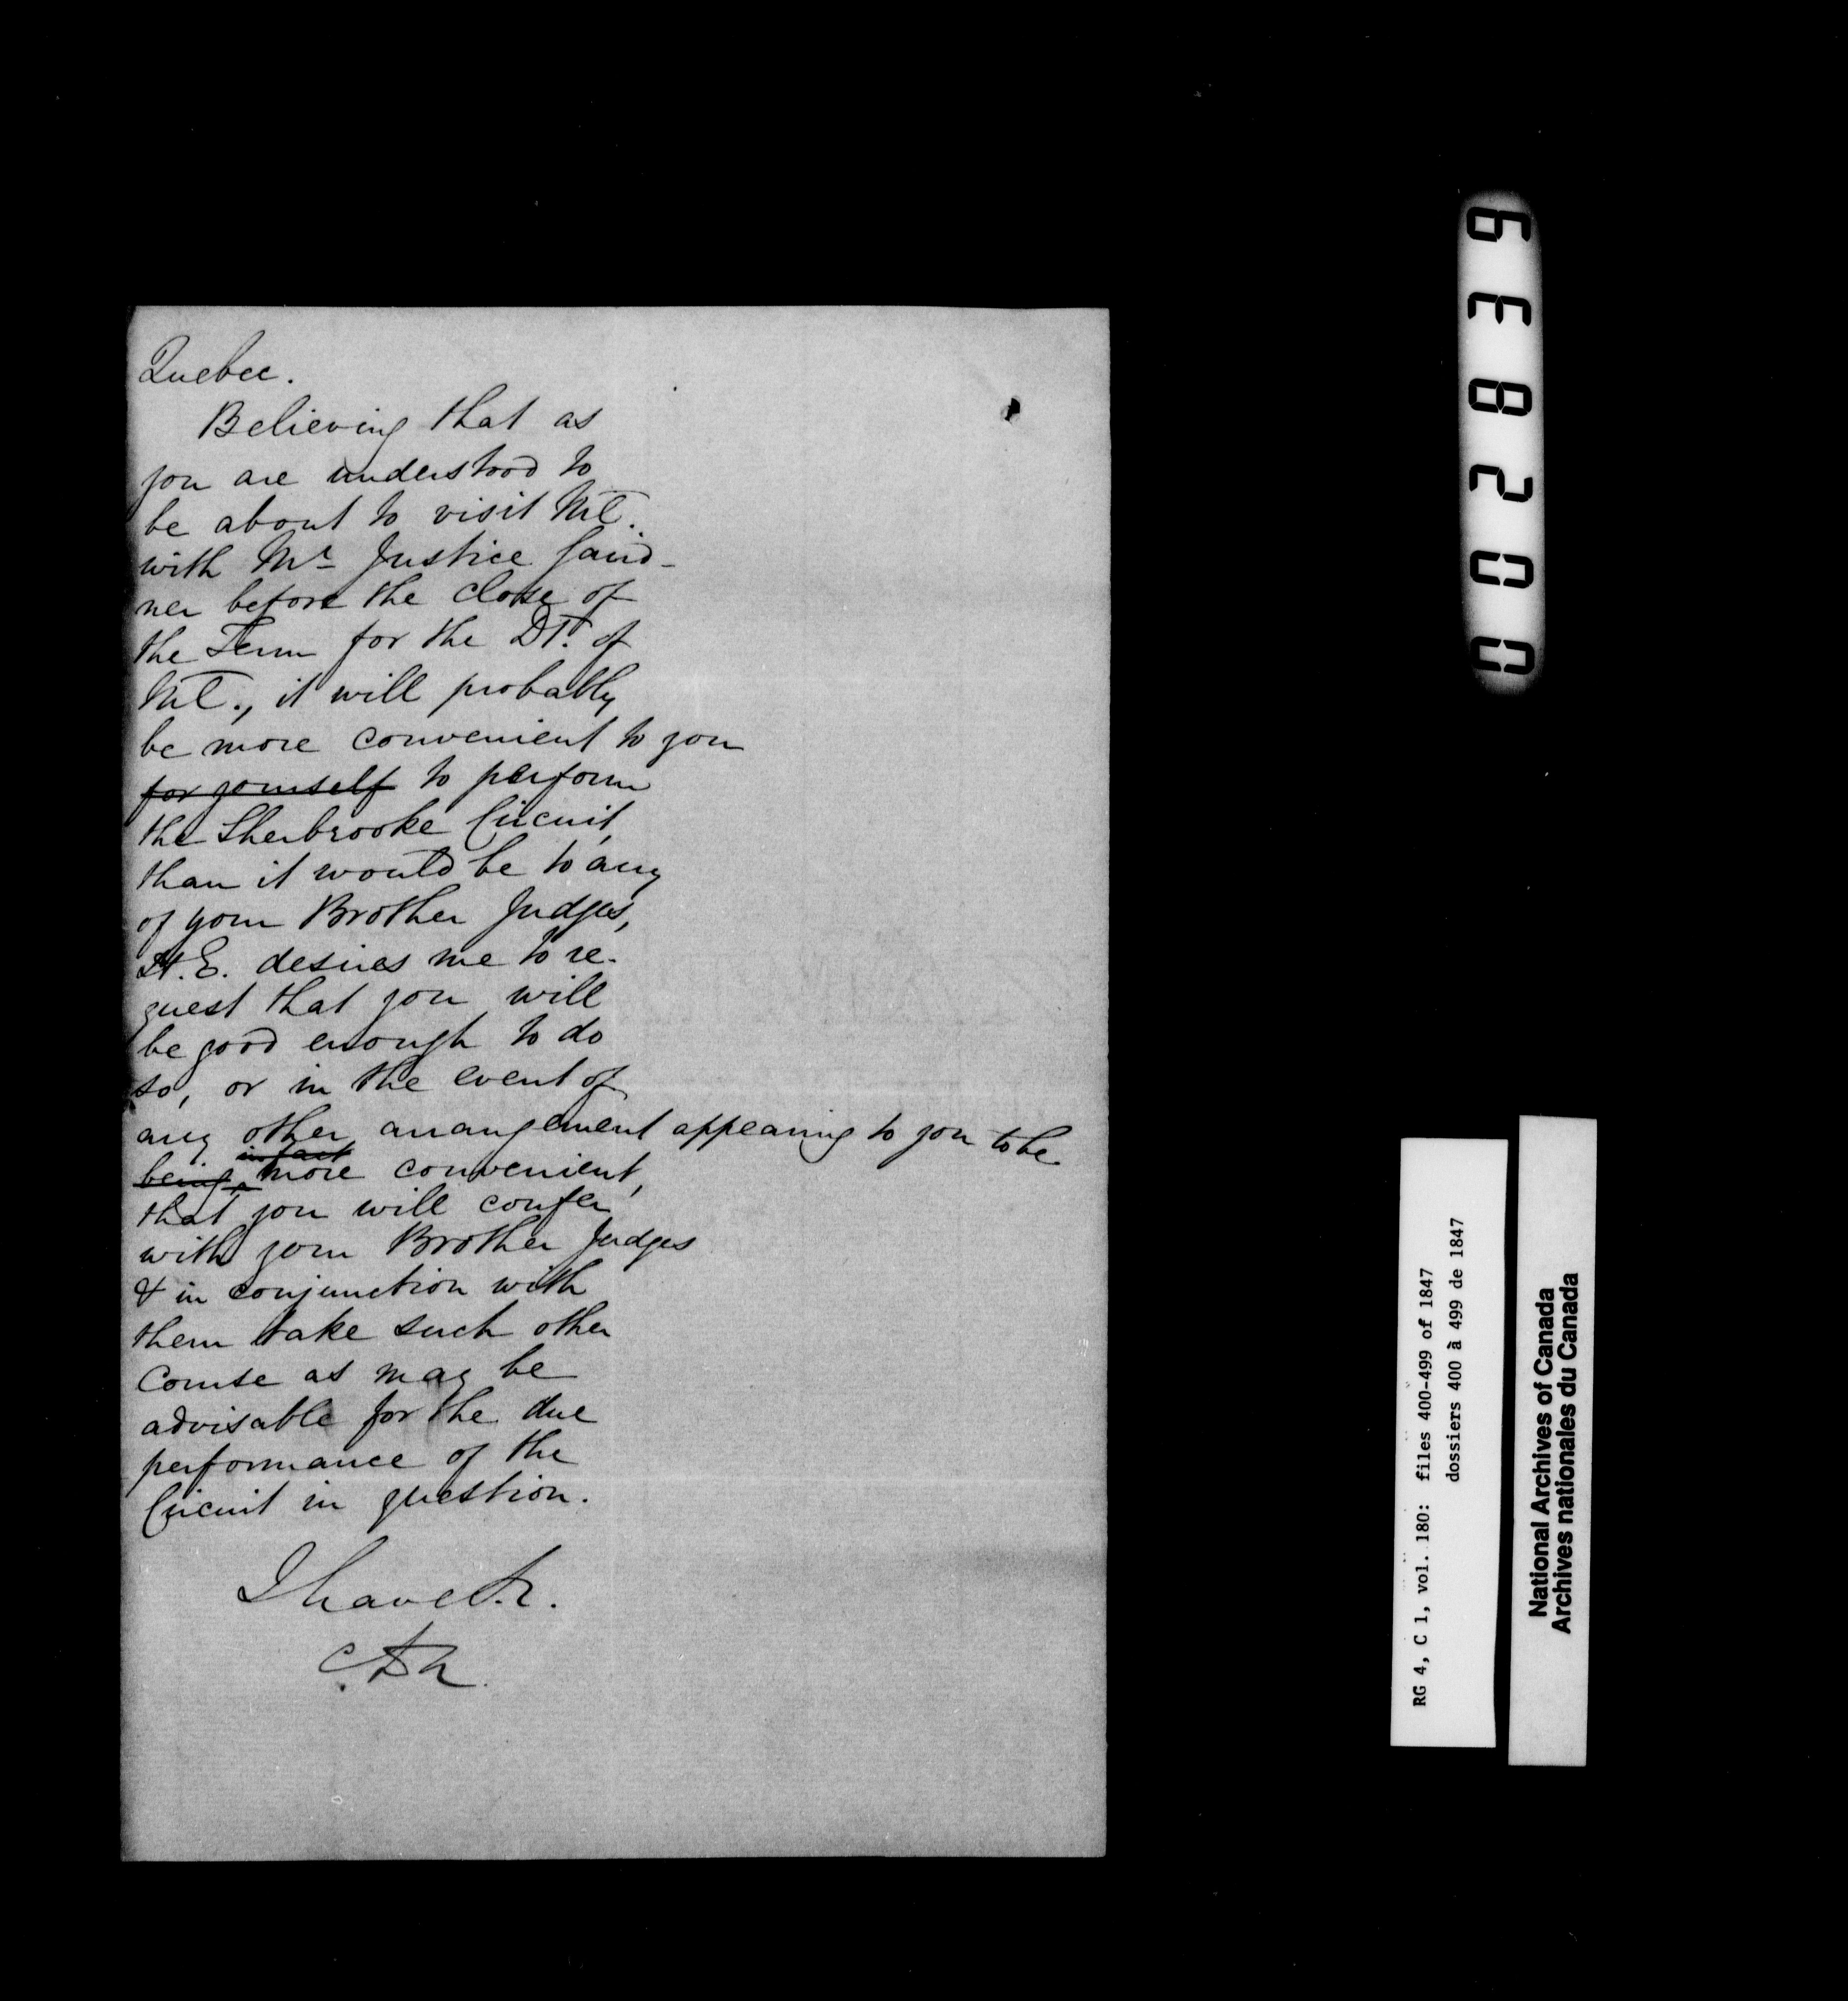 Quebec.
Believing that as
you are understood to
be about to visit Ml.
with Mr Justice Gaird-
ner before the close of
the Term for the Dt. of
Ml., it will probably
be more convenient to you
for yourself to perform
the Sherbrooke Circuit,
than it would be to any
of your Brother Judges,
H.E. desires me to re-
quest that you will
be good enough to do
so, or in the event of
any other arrangement appearing to you to be
in fact
being more convenient,
that you will confer
with your Brother Judges
& in conjunction with
them take such other
course as may be
advisable for the due
performance of the
Circuit in question.
I have &c.
002839
RG 4, C 1, vol. 180: files 400-499 of 1847
dossiers 400 à 499 de 1847
National Archives of Canada
Archives nationales du Canada